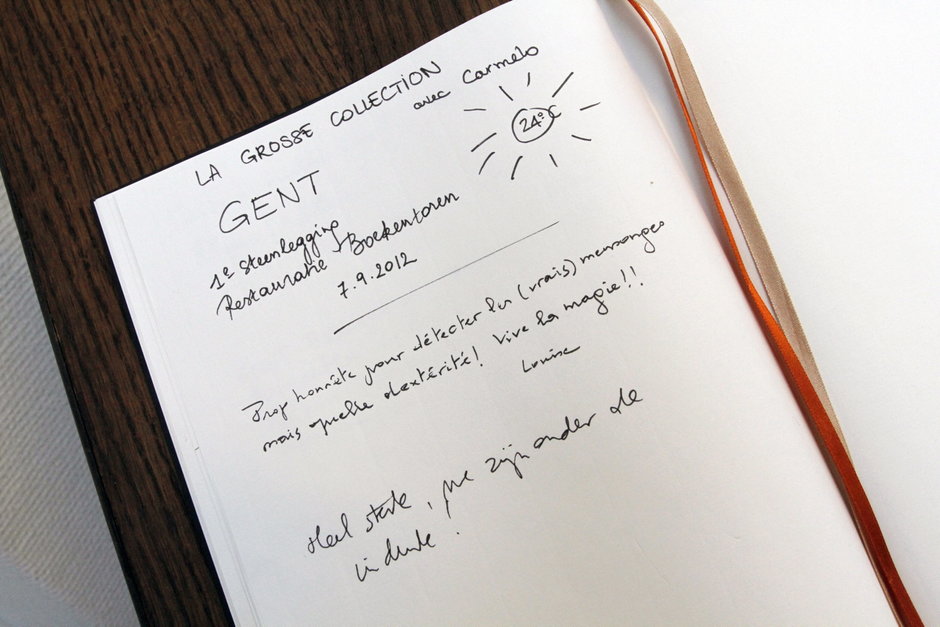 LA GROSSE COLLECTION avec Carmelo
24°C
GENT
1e steenlegging
Restauratie Boekentoren
7.9.2012
Trop honnête pour détecter les (vrais) mensonges
mais quelle dextérité! Vive la magie!!
Louise
Heel sterk, we zijn onder de
indruk!